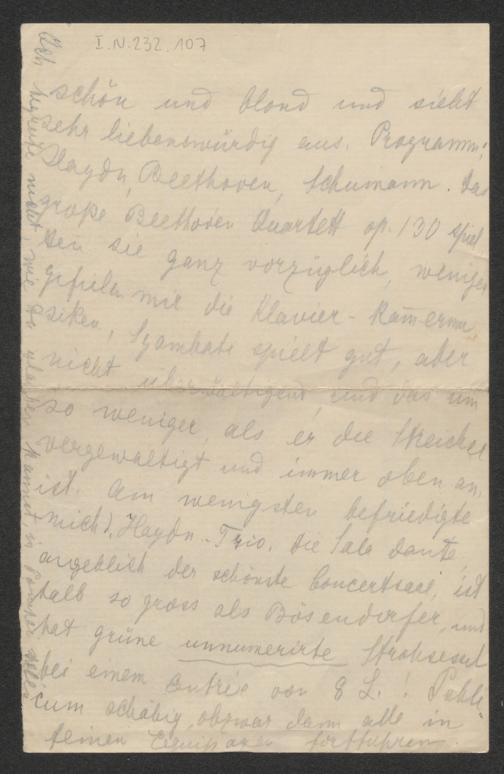 I.N. 232.107
schön und blond und sieht
sehr liebenswürdig aus. Programm:
Haydn, Beethoven, Schumann. Das
große Beethoven Quartett op. 130 spiel
ten sie ganz vorzüglich, weniger
gefielen mir die Klavier-Kammermu
siken, Sgambati spielt gut, aber
nicht überwältigend, und das um
so weniger, als er die Streicher
vergewaltigt und immer oben an
ist. Am wenigsten befriedigte
mich d. Haydn-Trio. Die Sala Dante,
angeblich der schönste Concertsaal, ist
halb so gross als Bösendorfer, und
hat grüne unnumerirte Strohsessel
bei einem Entrée von 8 L.! Publi-
cum schäbig, obzwar dann alle in
feinen Equipagen fortfuhren.
Ich begreife nicht, wie Du